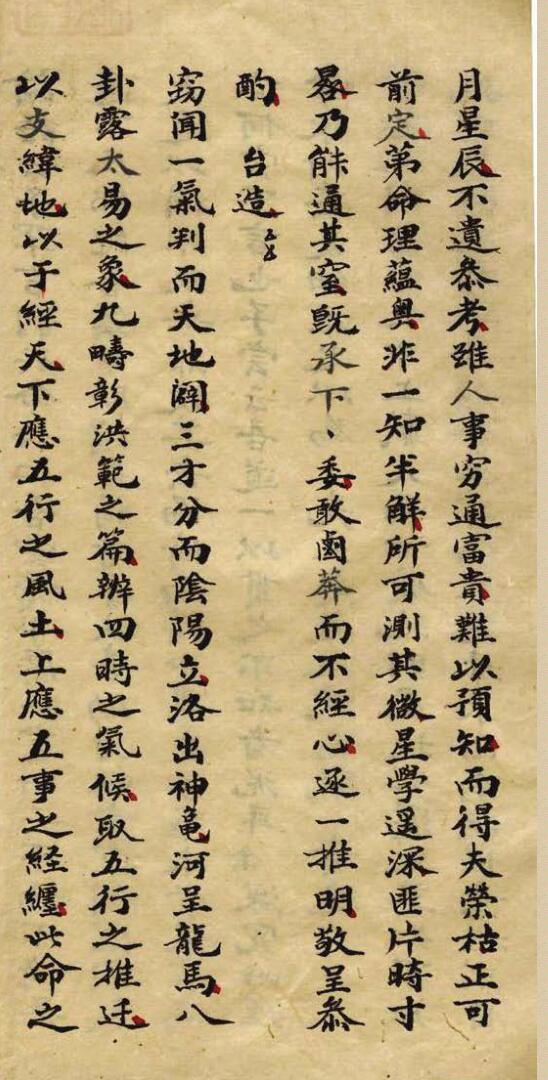 月星辰不遺叅考雖人事穷通富貴難以預知而得夫榮枯正可
前定苐命理蘊奧非一知半觧所可測其微星學遥深匪片時寸
晷乃能通其窒既承下、委敢鹵莽而不經心逐一推明敬呈叅
酌 台造
窃闻一氣判而天地闢三才分而陰陽立洛出神龟河呈龍馬八
卦露太易之象九疇彰洪範之篇辨四時之氣候取五行之推迁
以支緯地以于經天下應五行之風土上應五事之经纏此命之